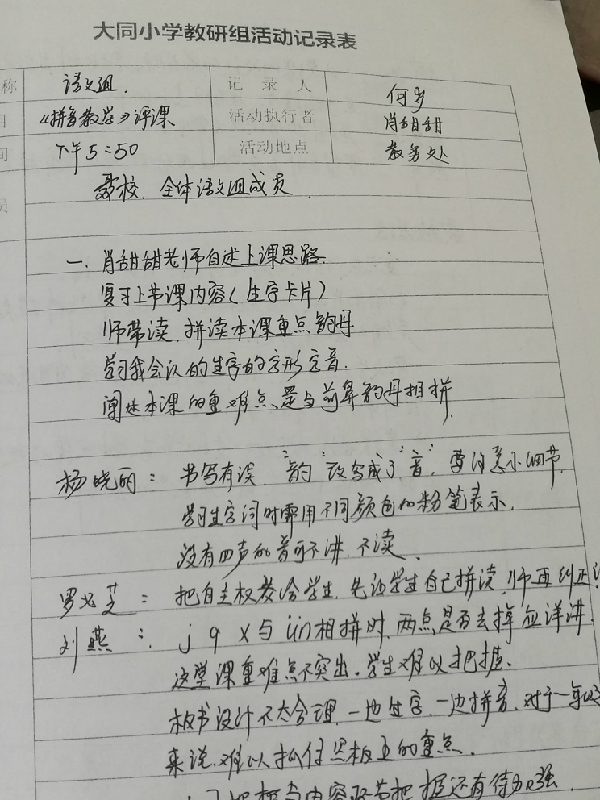 大同小学教研组活动记录表
称 语文组. 记录人 何岁
目 《拼音教学》评课 活动执行者 肖甜甜
间 下午5:50 活动地点 教务处
员 聂校、全体语文组成员
一、肖甜甜老师自述上课思路.
复习上节课内容(生字卡片)
师带读,拼读本课重点韵母
学习我会认的生字的字形字音.
阐述本课的重难点,是与前鼻韵母相拼.
杨晓丽: 书写有误 "韵"改写成了"音",要注意小细节.
学习生字词时需用不同颜色的粉笔表示.
没有四声的音可不讲、不读.
罗 芝: 把自主权发给学生,先让学生自己拼读,师再纠正
刘燕: j q x与ün相拼时,两点是否去掉应详讲.
这堂课重难点不突出,学生难以把握.
板书设计不太合理,一边生字,一边拼音,对于一年级
来说,难以抓住黑板上的重点.
内容环节把握还有待加强